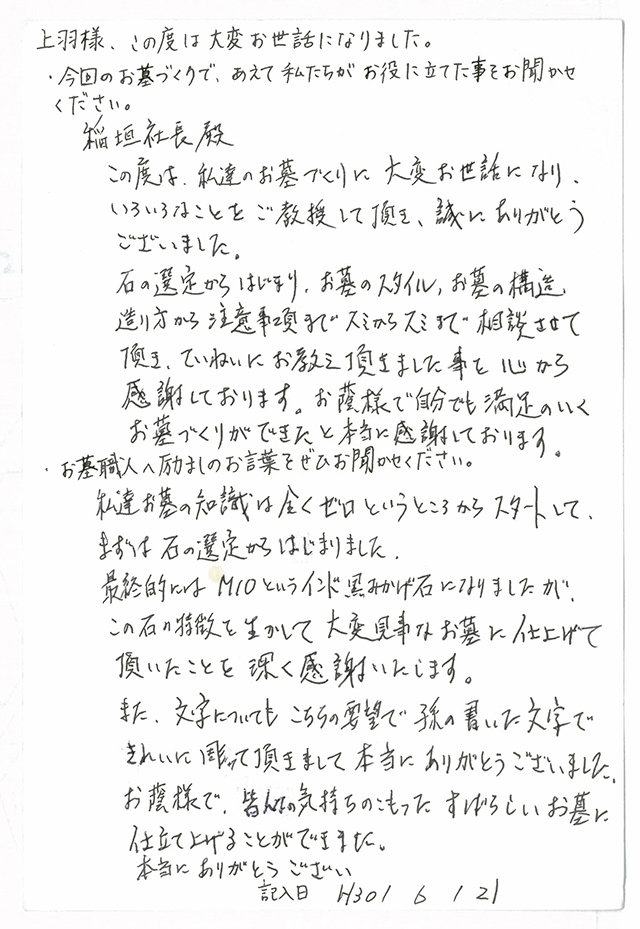 上羽様、この度は大変お世話になりました。
・今回のお墓づくりで、あえて私たちがお役に立てた事をお聞かせ
ください。
稲垣社長殿
この度は、私達のお墓づくりに大変お世話になり、
いろいろなことをご教授して頂き、誠にありがとう
ございました。
石の選定からはじまり、お墓のスタイル、お墓の構造
造り方から注意事項までスミからスミまで相談させて
頂き、ていねいにお教え頂きました事を心から
感謝しております。お蔭様で自分でも満足のいく
お墓づくりができたと本当に感謝しております。
・お墓職人へ励ましのお言葉をぜひお聞かせください。
私達お墓の知識は全くゼロというところからスタートして、
まずは石の選定からはじまりました。
最終的にはM10というインド黒みかげ石になりましたが、
この石の特徴を生かして大変見事なお墓に仕上げて
頂いたことを深く感謝いたします。
また、文字についてもこちらの要望で孫の書いた文字で
きれいに彫って頂きまして本当にありがとうございました。
お蔭様で、皆んなの気持ちのこもったすばらしいお墓に
仕立て上げることができました。
本当にありがとうござい
記入日 H30 / 6 / 21